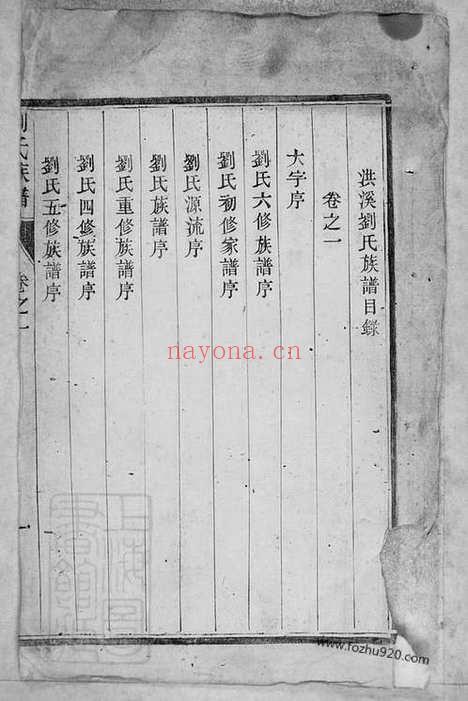 洪溪劉氏族譜目錄
卷之一
大字序
劉氏六修族譜序
劉氏初修家譜序
劉氏源流序
劉氏族譜序
劉氏重修族譜序
劉氏四修族譜序
劉氏五修族譜序
劉氏族譜
卷之一
nayona.cn
www.fozhu920.com